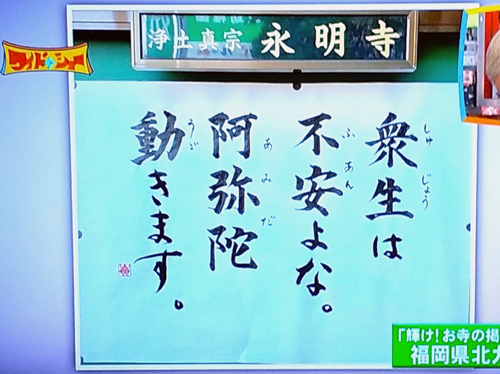 ワイドナショー
浄土真宗 永明寺
衆生は
しゅじょう
不安よな。
ふあん
阿弥陀
あみだ
動きます。
うご
「輝け!お寺の掲
福岡県北九